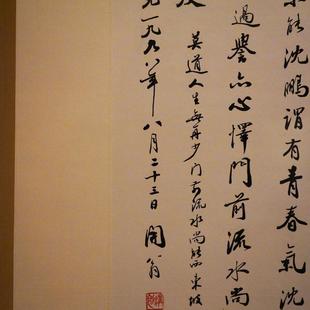 能沈鵬謂有青春氣沈
過譽亦心懌門前流水尚
莫道人生無再少门前流水尚能西東坡
一九九八年八月二十三日翁